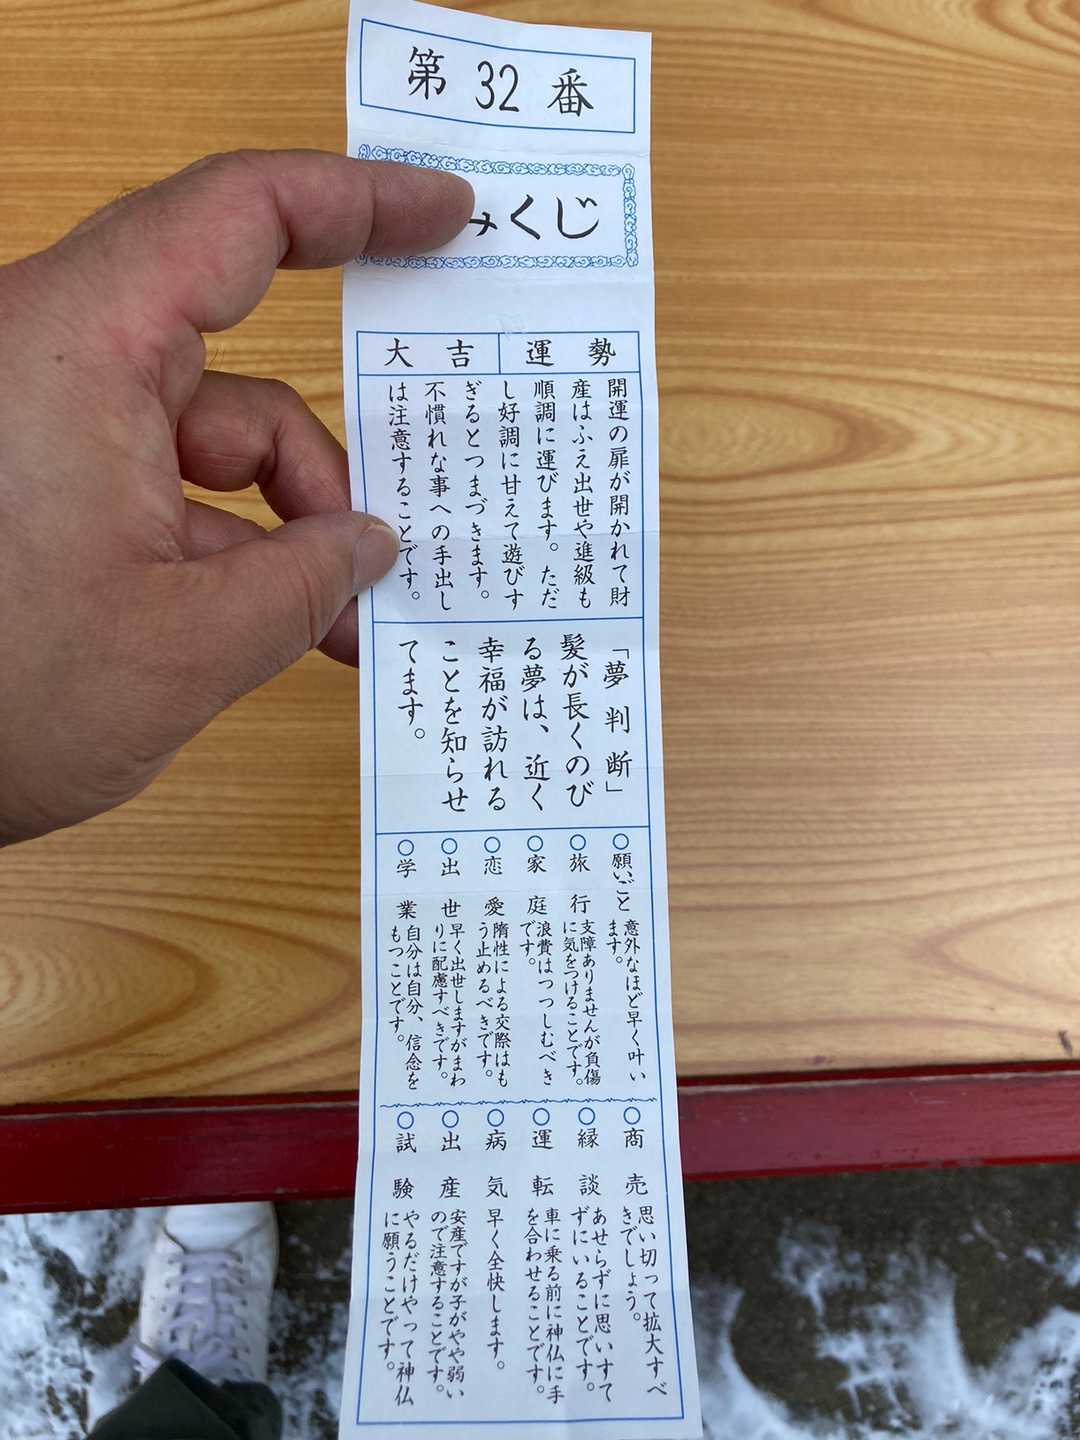 第32番
みくじ
運勢
大吉
開運の扉が開かれて財
産はふえ出世や進級も
順調に運びます。ただ
し好調に甘えて遊びす
ぎるとつまづきます。
不慣れな事への手出し
は注意することです。
「夢判断」
髪が長くのび
る夢は、近く
幸福が訪れる
ことを知らせ
てます。
○願いごと
意外なほど早く叶い
ます。
○旅行
支障ありませんが負傷
に気をつけることです。
○家庭
浪費はつつしむべき
です。
○恋愛
隋性による交際はも
う止めるべきです。
○出世
早く出世しますがまわ
りに配慮すべきです。
○学業
自分は自分、信念を
もつことです。
○商売
思い切って拡大すべ
きでしょう。
○縁談
あせらずに思いすて
ずにいることです。
○運転
車に乗る前に神仏に手
を合わせることです。
○病気
早く全快します。
○出産
安産ですが子がやや弱い
ので注意することです。
○試験
やるだけやって神仏
に願うことです。